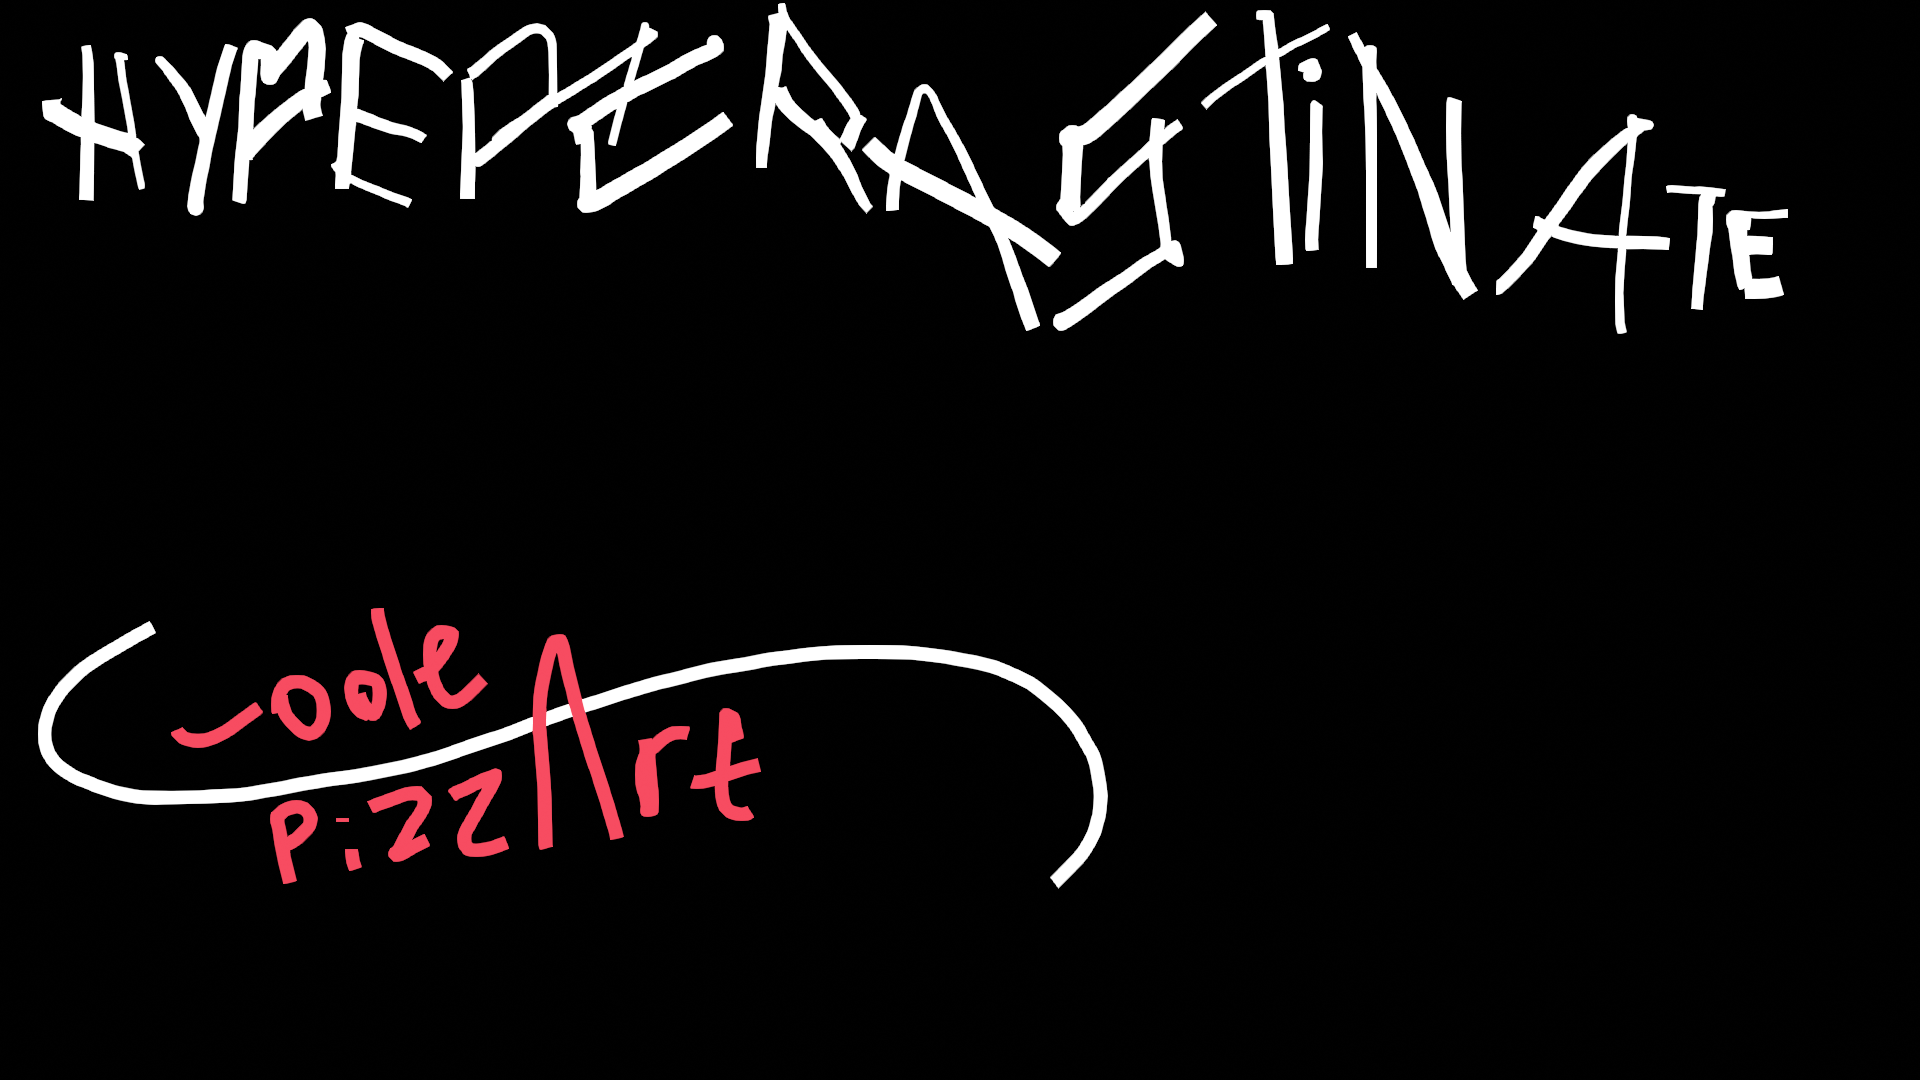 HYPEPERASTiNATE
~oole
pizzArt